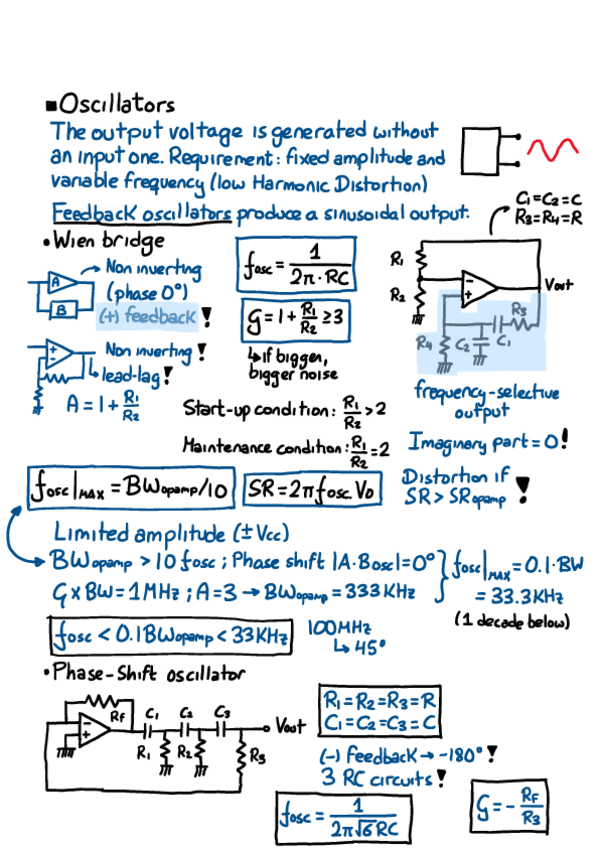 ▪Oscillators
The output voltage is generated without
an input one. Requirement: fixed amplitude and
variable frequency (low Harmonic Distortion)
Feedback oscillators produce a sinusoidal output.
C₁=C₂=C
R₃=R₄=R
•Wien bridge
Non inverting
(phase 0°)
(+) feedback!
A
B
fosc = 1 / 2π·RC
G = 1 + R₁/R₂ ≥ 3
↳if bigger,
bigger noise
R₁
R₂
Vout
R₃
C₁
R₄
C₂
Non inverting!
lead-lag!
A = 1 + R₁/R₂
frequency-selective
output
Start-up condition: R₁/R₂ > 2
Maintenance condition: R₁/R₂ = 2
Imaginary part = 0!
fosc|MAX = BWopamp/10
SR = 2π fosc Vo
Distortion if
SR > SRopamp !
Limited amplitude (±Vcc)
BWopamp > 10 fosc ; Phase shift |A·Bosc| = 0°
G x BW = 1MHz ; A = 3 → BWopamp = 333 KHz
fosc|MAX = 0.1·BW
= 33.3KHz
(1 decade below)
fosc < 0.1BWopamp < 33KHz
100MHz
↳ 45°
•Phase-Shift oscillator
RF
C₁
C₂
C₃
Vout
R₁
R₂
R₃
R₁=R₂=R₃=R
C₁=C₂=C₃=C
(-) feedback → -180° !
3 RC circuits!
fosc = 1 / 2π√6 RC
G = - RF/R₃